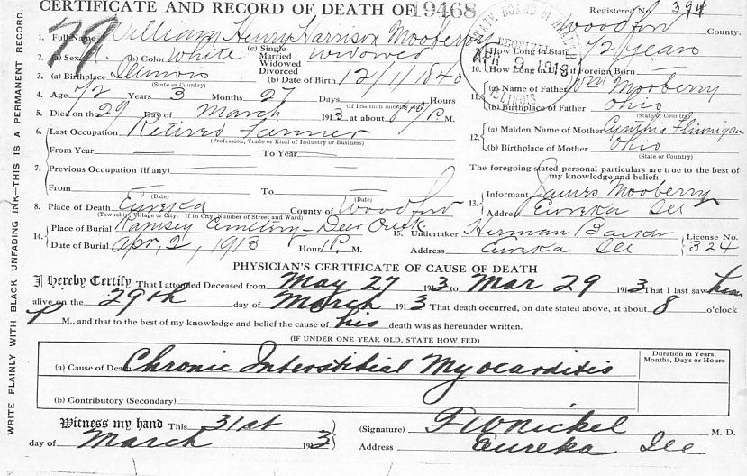 CERTIFICATE AND RECORD OF DEATH OF 19468 Registered No. 394
77 Woodford County.
1. Full Name William Henry Harrison Mooberry
2. (a) Sex (b) Color White (c) Single Married Widowed Divorced Widowed
9. How Long in State 72 years
3. (a) Birthplace Illinois (State or Country) (b) Date of Birth 12/1/1840
10. How Long in Foreign Born
4. Age 72 Years 3 Months 27 Days Hours
11. (a) Name of Father Wm Mooberry
(b) Birthplace of Father Ohio
(State or Country)
5. Died on the 29 Day of March 1913 at about 8 P M.
6. Last Occupation Retired Farmer
(Profession, Trade or Kind of Industry or Business)
From Year To Year
12. (a) Maiden Name of Mother Cynthia
(b) Birthplace of Mother Ohio
(State or Country)
7. Previous Occupation (If any)
From To
(Date) (Date)
The foregoing stated personal particulars are true to the best of my knowledge and belief:
13. Informant James Mooberry
Address Eureka Ill
8. Place of Death Eureka County of Woodford
(Township, Village or City. If in City, Number of Street and Ward)
14. Place of Burial Ramsey Cemetery - Deer Creek
Date of Burial Apr, 2, 1913 Hour 1 P.M.
15. Undertaker Herman License No. 324
Address Eureka Ill
PHYSICIAN'S CERTIFICATE OF CAUSE OF DEATH
I hereby Certify That I attended Deceased from May 27 1913 to Mar 29 1913 That I last saw him
alive on the 29th day of March 1913 That death occurred, on date stated above, at about 8 o'clock
P M., and that to the best of my knowledge and belief the cause of his death was as hereunder written.
(IF UNDER ONE YEAR OLD, STATE HOW FED)
(a) Cause of Death Chronic Interstitial Myocarditis
Duration in Years, Months, Days or Hours
(b) Contributory (Secondary)
Witness my hand This 31st
day of March 1913
(Signature) F W Nickel M. D.
Address Eureka Ill
WRITE PLAINLY WITH BLACK UNFADING INK—THIS IS A PERMANENT RECORD.